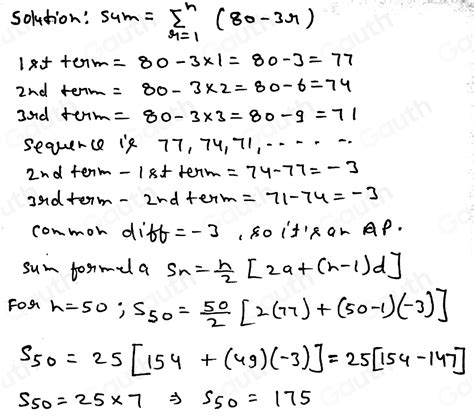 Solution: Sum = n∑r=1 (80-3r)
1st term = 80-3×1 = 80-3 = 77
2nd term = 80-3×2 = 80-6 = 74
3rd term = 80-3×3 = 80-9 = 71
sequence is 77, 74, 71, - - - - - -
2nd term - 1st term = 74-77 = -3
3rd term - 2nd term = 71-74 = -3
common diff = -3 , so it's an AP.
sum formula Sn = n/2 [2a+(n-1)d]
For n=50 ; S50 = 50/2 [2(77) + (50-1)(-3)]
S50 = 25[154 + (49)(-3)] = 25[154-147]
S50 = 25×7 ⇒ S50 = 175
Gauth